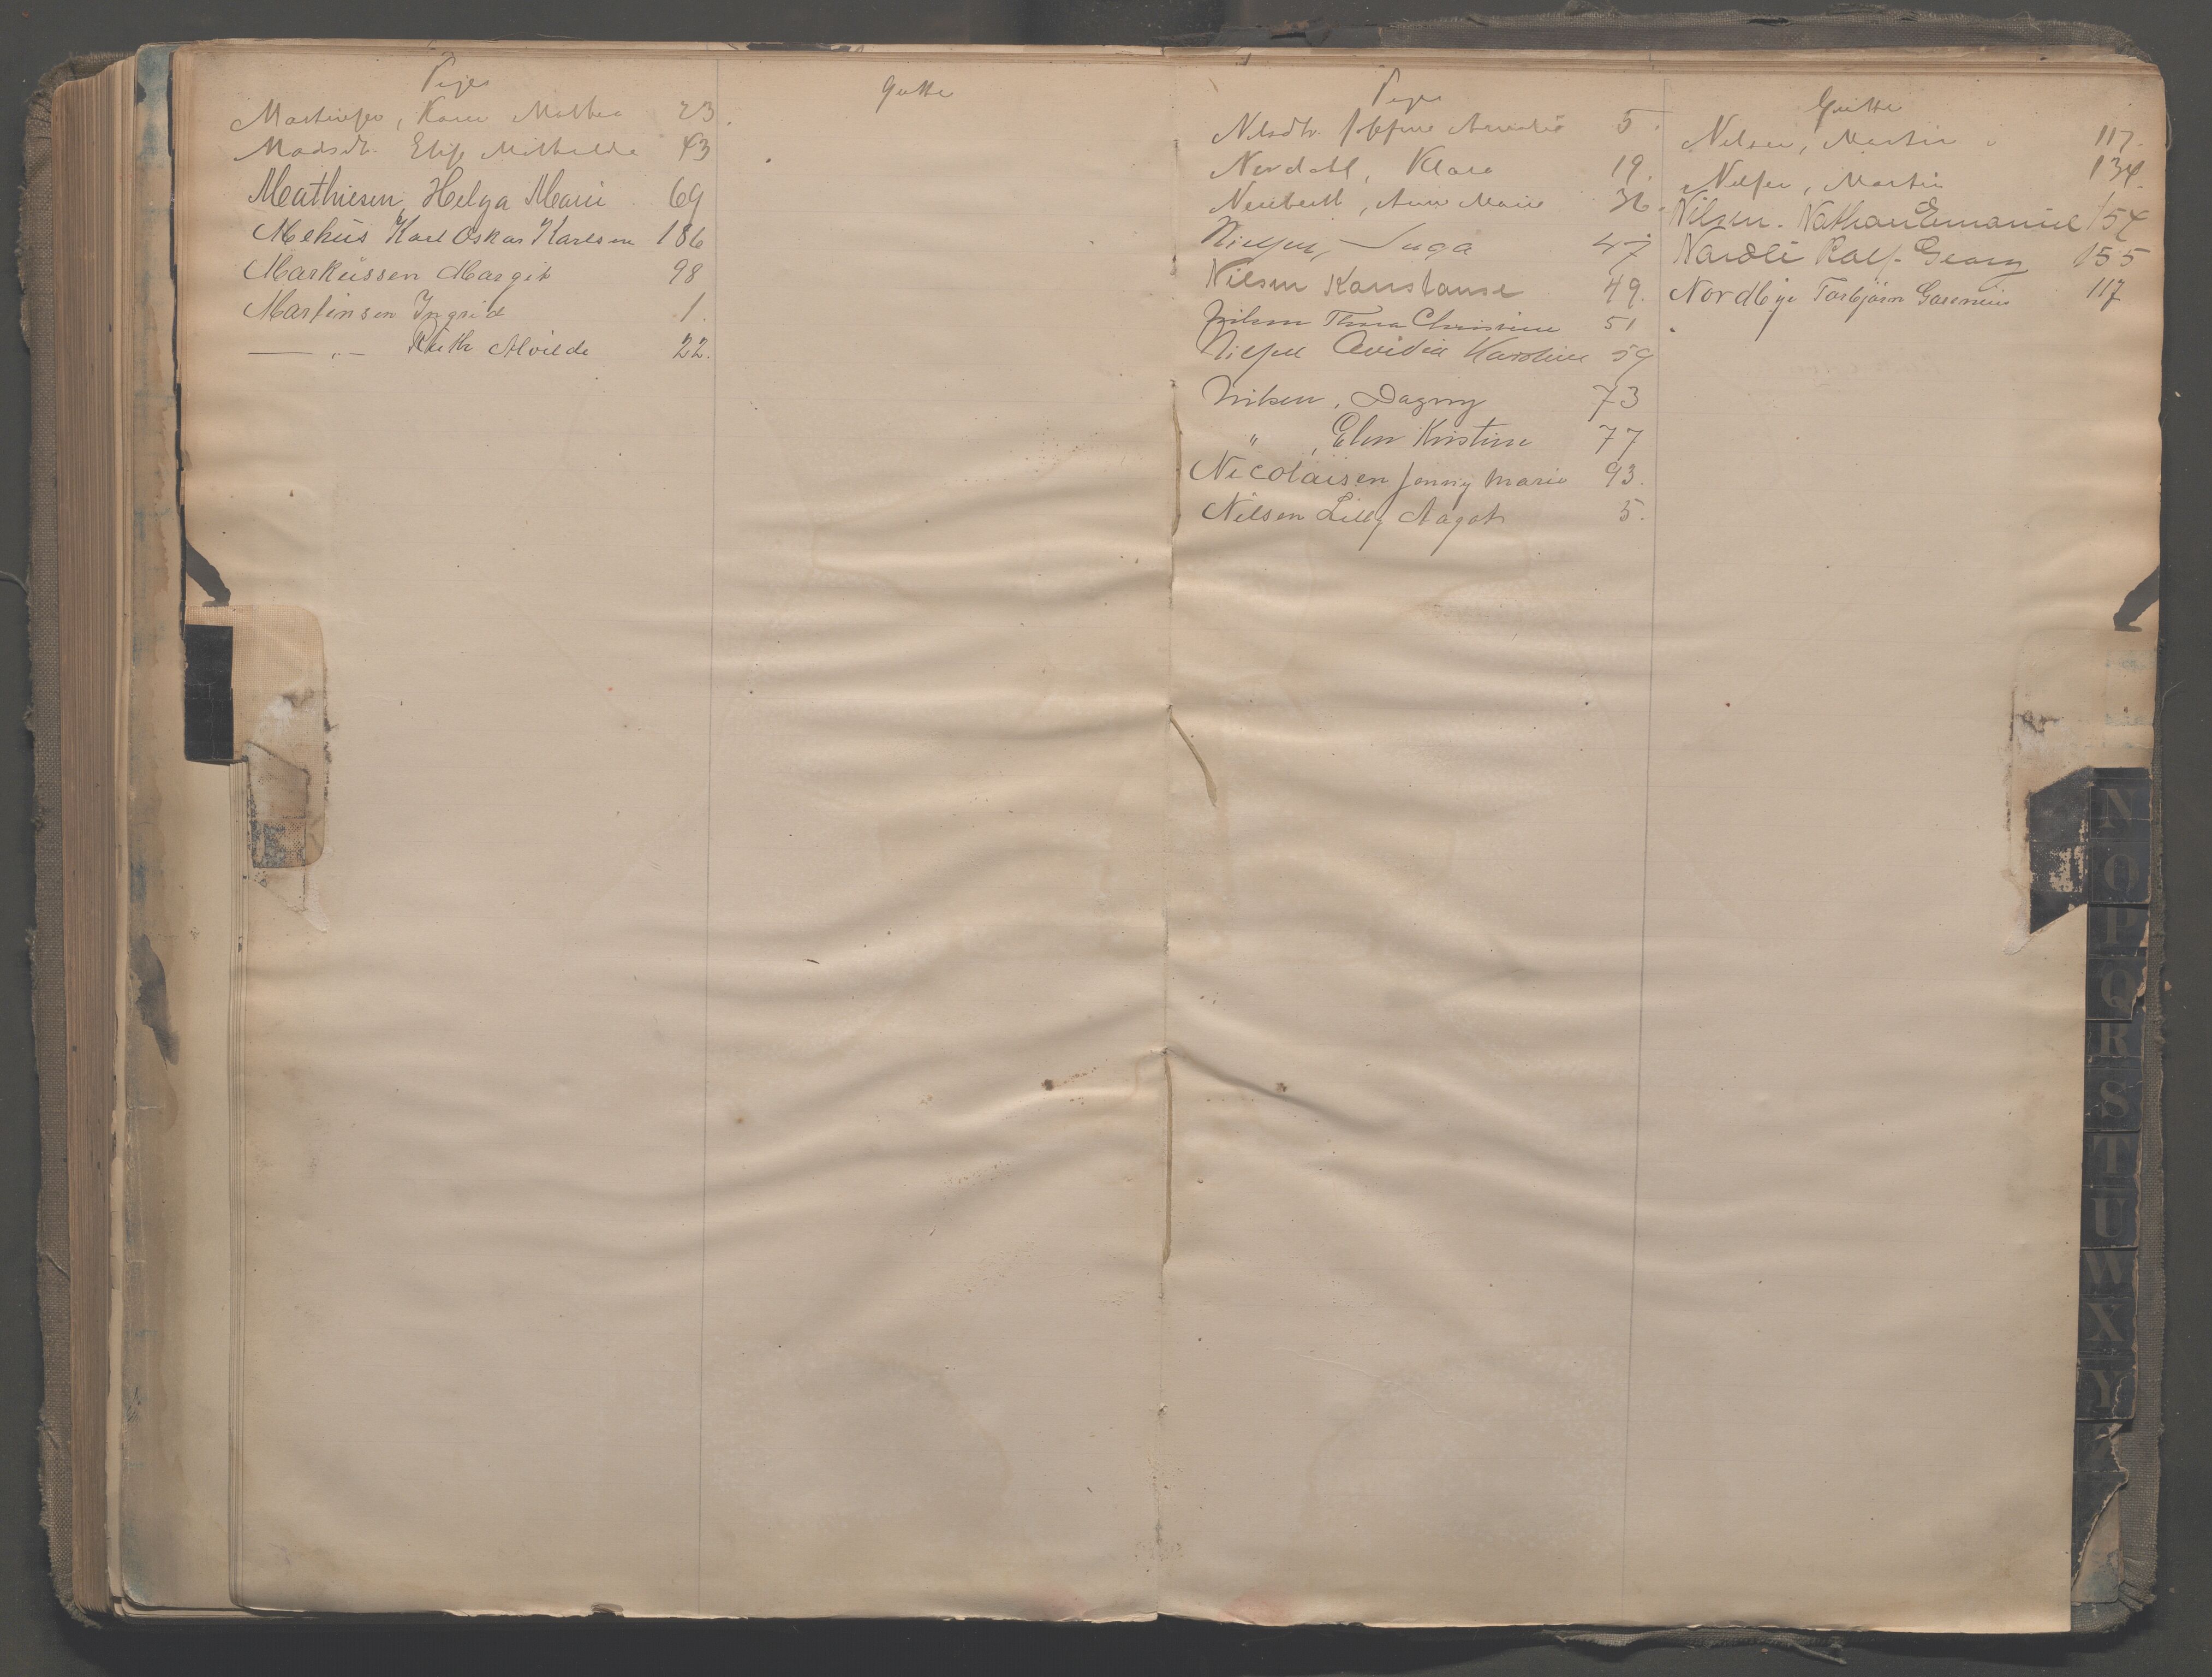 Piger
Martinsen, Karen Mathea 23.
Madsdt. Elise Mathilde 43
Mathiesen, Helga Marie 69
Mehus Karl Oskar Karlsen 186
Markussen Margit 98
Martinsen Ingrid 1.
— „ — Ruth Alvilde 22.
Gutte
Piger
Nilsdtr. Josefine Amalie 5.
Nordahl, Klara 19.
Anna Marie 36.
Nielsen, Inga 47
Nilsen Konstanse 49.
Nilsen Thora Christine 51
Nielsen Ovidia Karoline 59
Nilsen, Dagny 73
" , Elen Kristine 77
Nicolaisen Jenny Marie 93.
Nilsen Lilly Aagot 5.
Gutte
Nilsen, Martin 117.
Nilsen, Martin 134.
Nilsen. Nathan Emanuel 154
Nardli Ralf. Georg 155
Nordbye Torbjørn 117
N
O
P
Q
R
S
T
U
W
X
Y
Z